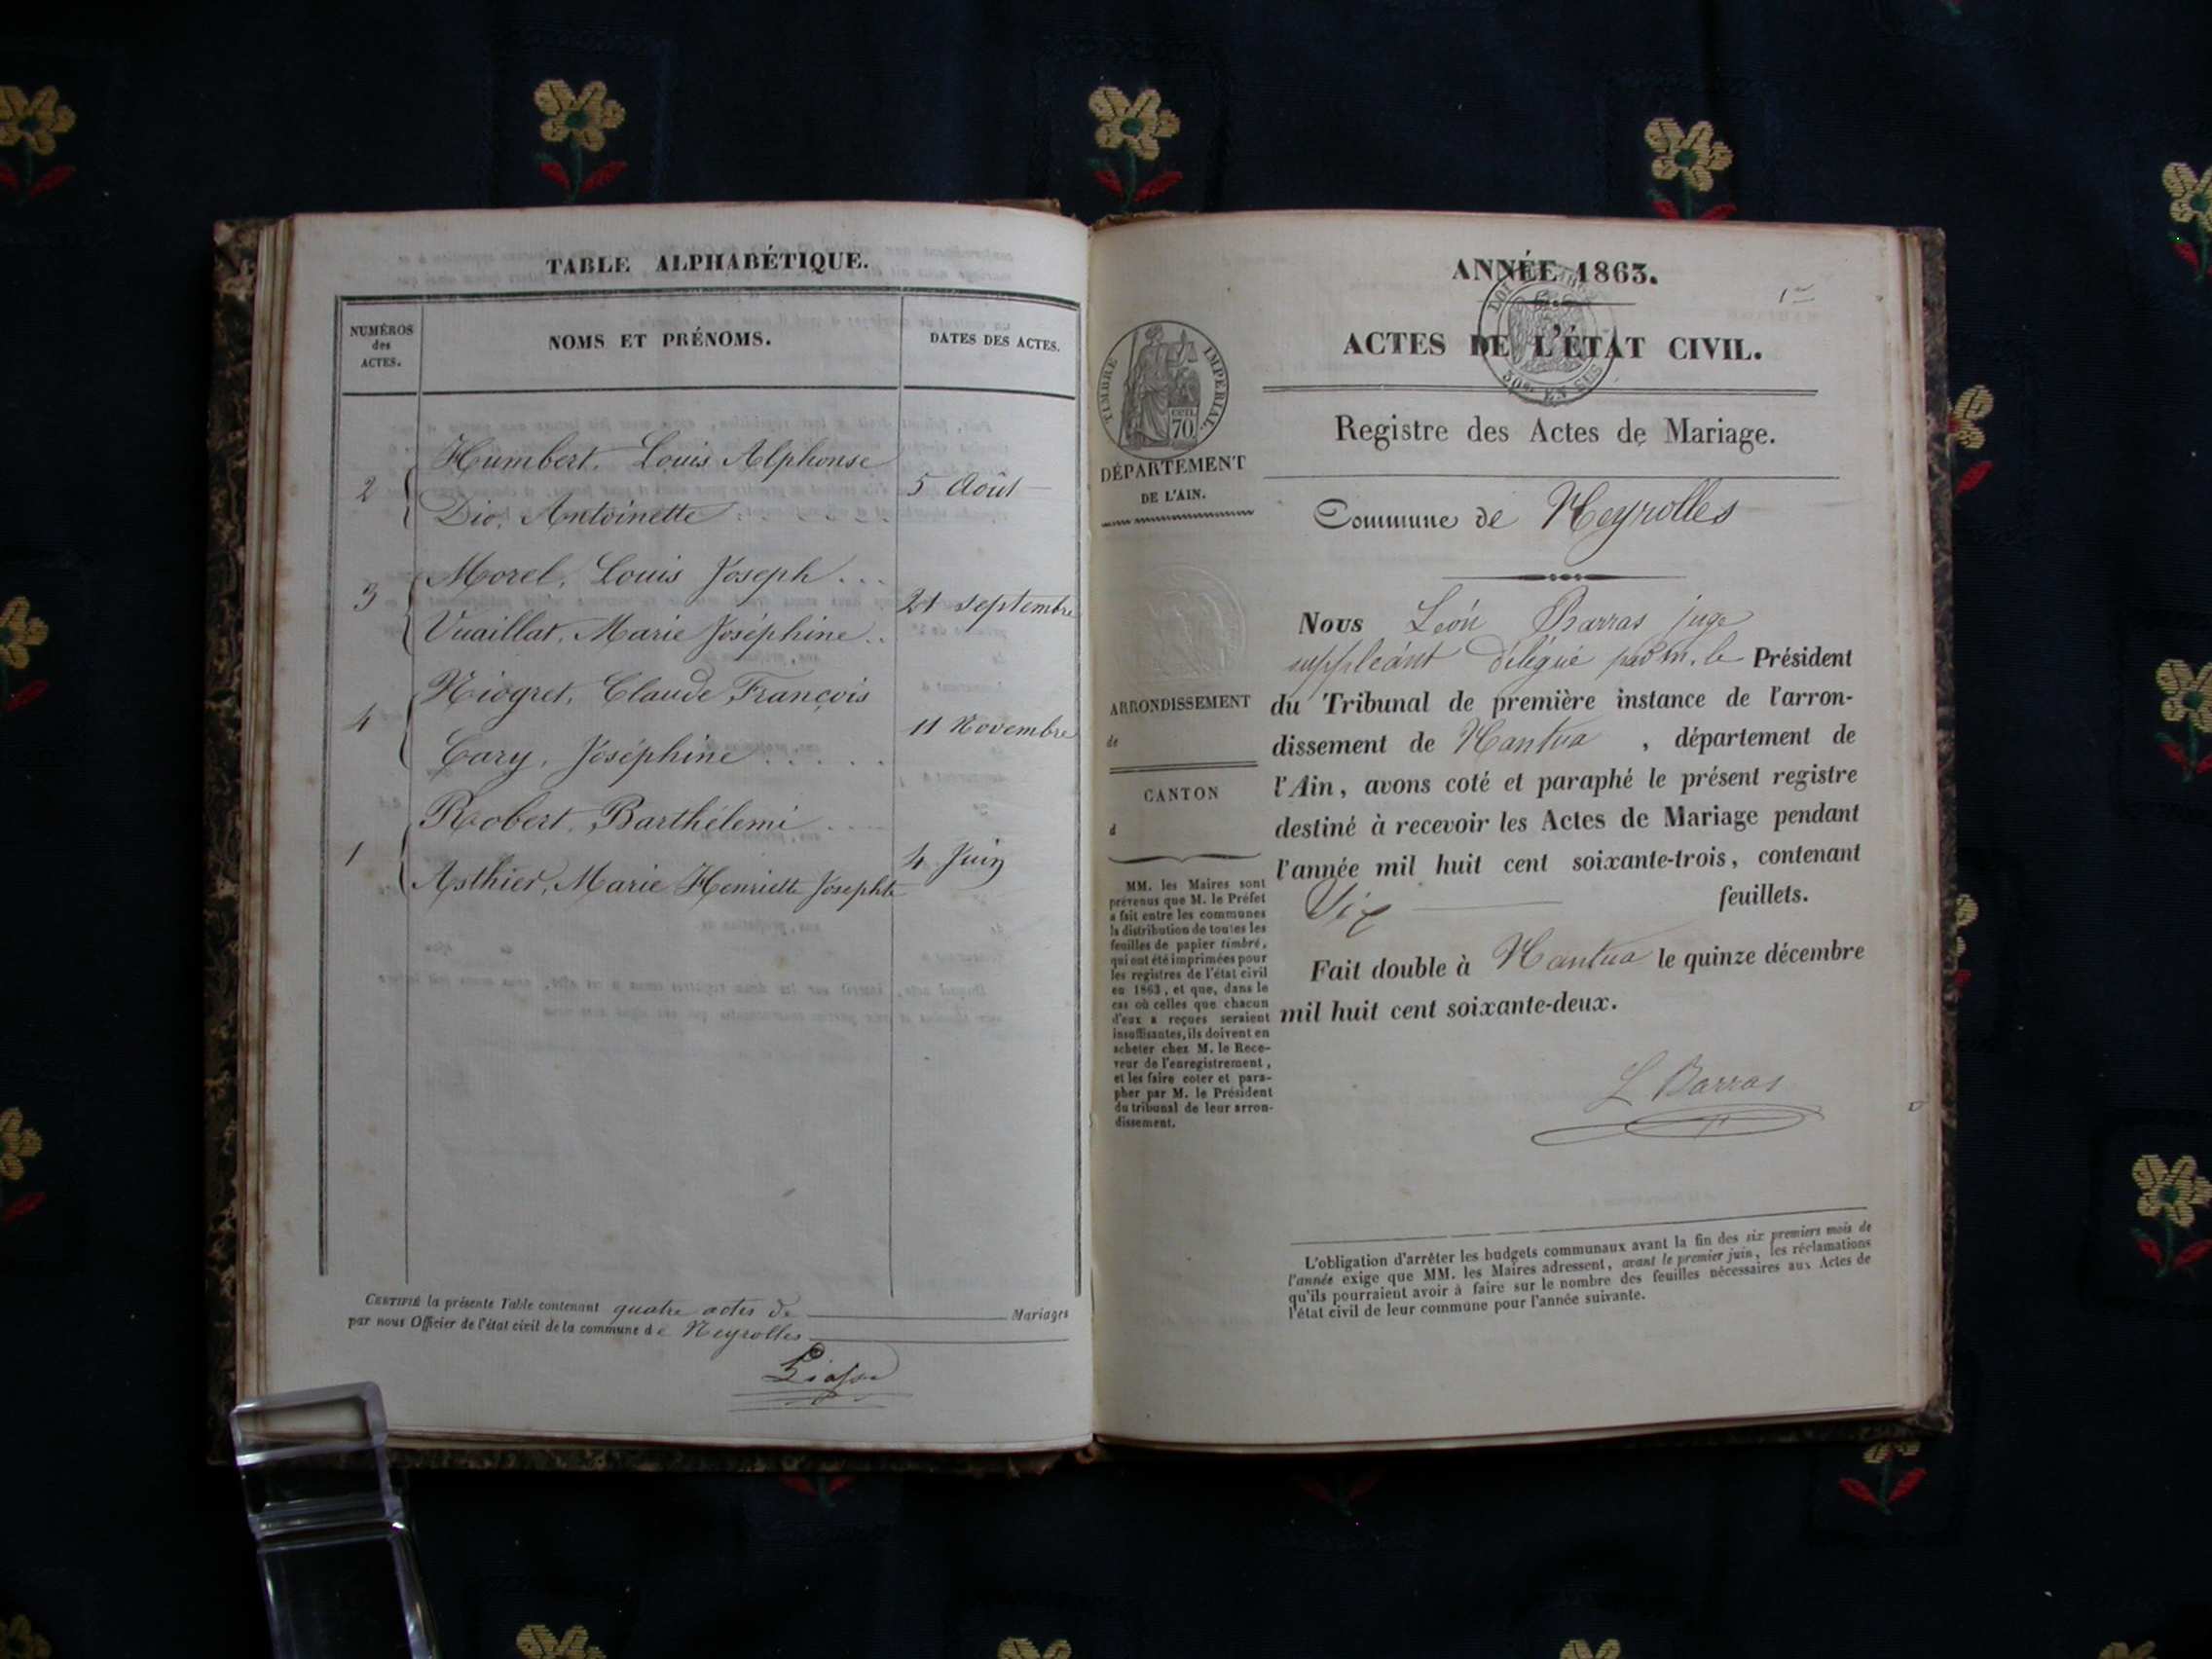 TABLE ALPHABÉTIQUE.
NUMÉROS
des
ACTES.
NOMS ET PRÉNOMS.
DATES DES ACTES.
Humbert, Louis Alphonse
2
5 Août
Dio, Antoinette
Morel, Louis Joseph
3
21 septembre
Vuaillat, Marie Joséphine
Niogret, Claude François
4
11 Novembre
Cary, Joséphine
Robert, Barthélemi
1
4 Juin
Asthier, Marie Henriette Josephte
CERTIFIÉ la présente Table contenant quatre actes de Mariages
par nous Officier de l'état civil de la commune de Neyrolles
ANNÉE 1863.
1er
ACTES DE L'ÉTAT CIVIL.
50 EN SUS
TIMBRE IMPÉRIAL.
CENT.
70
Registre des Actes de Mariage.
DÉPARTEMENT
DE L'AIN.
Commune de Neyrolles
Nous Léon Barras juge
suppléant délégué par m. le Président
ARRONDISSEMENT
de
du Tribunal de première instance de l'arron-
dissement de Nantua, département de
l'Ain, avons coté et paraphé le présent registre
destiné à recevoir les Actes de Mariage pendant
l'année mil huit cent soixante-trois, contenant
Six feuillets.
Fait double à Nantua le quinze décembre
mil huit cent soixante-deux.
L Barras
CANTON
d
MM. les Maires sont
prévenus que M. le Préfet
a fait entre les communes
la distribution de toutes les
feuilles de papier timbré,
qui ont été imprimées pour
les registres de l'état civil
en 1863, et que, dans le
cas où celles que chacun
d'eux a reçues seraient
insuffisantes, ils doivent en
acheter chez M. le Rece-
veur de l'enregistrement,
et les faire coter et para-
pher par M. le Président
du tribunal de leur arron-
dissement.
L'obligation d'arrêter les budgets communaux avant la fin des six premiers mois de
l'année exige que MM. les Maires adressent, avant le premier juin, les réclamations
qu'ils pourraient avoir à faire sur le nombre des feuilles nécessaires aux Actes de
l'état civil de leur commune pour l'année suivante.